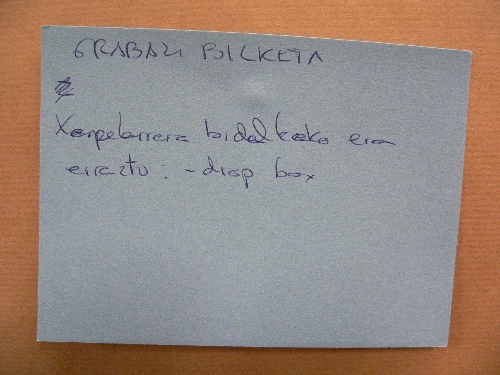 GRABAZI BILKETA
Xenpelarrera bidaltzeko era
erraztu: - drop box